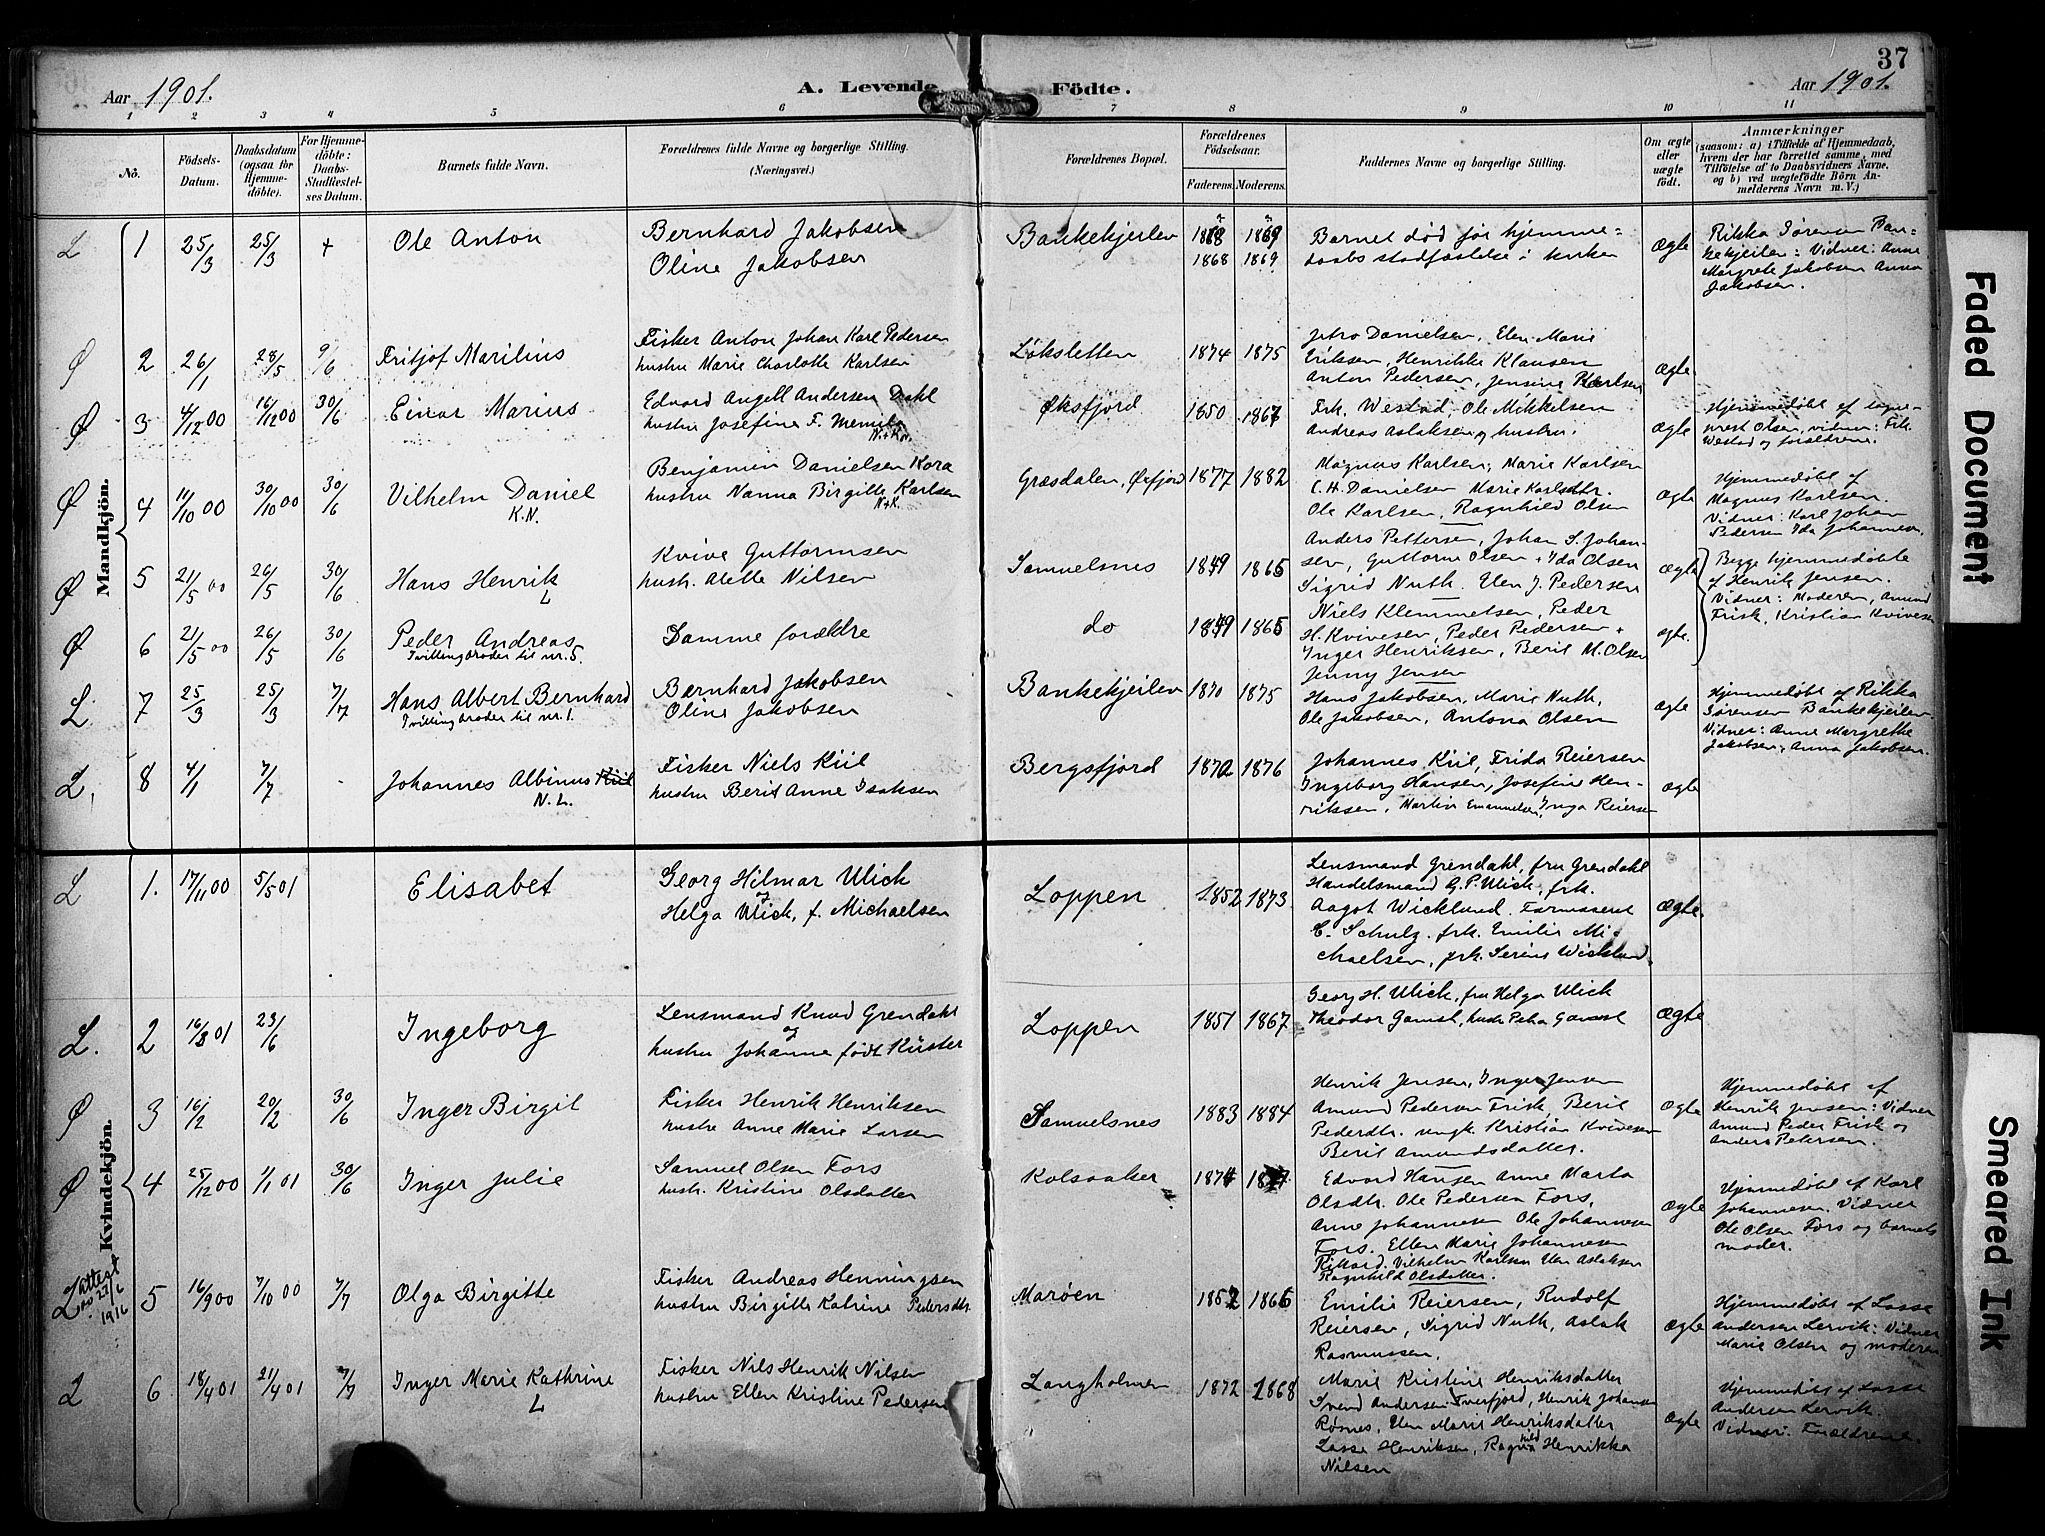 37
Aar 1901.
A. Levende Födte.
Aar 1901.
1 2 3 4 5 6 7 8 9 10 11
No.
Födsels-
Datum.
Daabsdatum
(ogsaa for
Hjemme-
döbte).
For Hjemme-
döbte:
Daabs-
Stadfæstel-
ses Datum.
Barnets fulde Navn.
Forældrenes fulde Navne og borgerlige Stilling.
(Næringsvei.)
Forældrenes Bopæl.
Forældrenes
Födselsaar.
Faderens. Moderens.
Faddernes Navne og borgerlige Stilling.
Om ægte
eller
uægte
födt.
Anmærkninger
(saasom: a) i Tilfælde af Hjemmedaab,
hvem der har forrettet samme, med
Tilföielse af to Daabsvidners Navne,
og b) ved uægtefödte Börn An-
melderens Navn m. V.)
Mandkjön.
L 1 25/3 25/3 + Ole Anton
Bernhard Jakobsen
Oline Jakobsen
Bankekjeilen
1868 1869
Barnet död før hjemme=
daabs stadfæstelse i kirken
Ægte
Rikka Sørensen Ban=
kekjeilen: Vidner: Anne
Margrete Jakobsen Anna
Jakobsen.
Ø 2 26/1 28/5 9/6 Fritjof Marilius
Fisker Anton Johan Karl Pedersen
hustru Marie Charlotte Karlsen
Løksletten 1874 1875
Jetro Danielsen, Elen Marie
Eriksen, Henrikke Klausen
Anton Pedersen, Jensine Karlsen
Ægte
Ø 3 4/12 00 16/12 00 30/6 Einar Marius
Edvard Angell Andersen Dahl
hustru Josefine F.
N+K.
Øksfjord 1850 1867
Frk. Westad, Ole Mikkelsen
Andreas Aslaksen og hustru.
Ægte
Hjemmedøbt af sogne-
prest Olsen, vidner: Frk.
Westad og forældrene.
Ø 4 11/10 00 30/10 00 30/6 Vilhelm Daniel
K.N.
Benjamin Danielsen Kora
hustru Nanna Birgitte Karlsen
N+K.
Græsdalen, Øxfjord 1877 1882
Magnus Karlsen, Marie Karlsen
C.H. Danielsen Marie Karlsdtr.
Ole Karlsen, Ragnhild Olsen
Ægte
Hjemmedøbt af
Magnus Karlsen.
Vidner: Karl Johan
Pedersen Ida Johannesen
Ø 5 21/5 00 26/5 30/6 Hans Henrik
L
Kvive Guttormsen
hustr. Alette Nilsen
Samuelsnes 1849 1865
Anders Pettersen, Johan S. Johan-
sen, Guttorm Olsen, Ida Olsen
Sigrid Nuth. Elen J. Pedersen
Ægte
Begge hjemmedøbte
af Henrik Jensen.
Vidner: Moderen, Amund
Frisk, Kristian Kvivesen
Ø 6 21/5 00 26/5 30/6 Peder Andreas
Tvillingbroder til nr. 5.
Samme forældre
do 1849 1865
Niels Klemmetsen, Peder
H. Kvivesen, Peder Pedersen +
Inger Henriksen, Berit M. Olsen
Jenny Jensen
ægte.
L 7 25/3 25/3 7/7 Hans Albert Bernhard
Tvillingbroder til nr. 1.
Bernhard Jakobsen
Oline Jakobsen
Bankekjeilen 1870 1875
Hans Jakobsen, Marie Nuth,
Ole Jakobsen, Antona Olsen
Ægte
Hjemmedøbt af Rikka
Sørensen Bankekjeilen
Vidner: Anne Margrethe
Jakobsen, Anna Jakobsen.
L. 8 4/1 7/7 - Johannes Albinus Kiil
N. L.
Fisker Niels Kiil
hustru Berit Anne Isaksen
Bergsfjord 1872 1876
Johannes Kiil, Frida Reiersen
Ingeborg Hansen, Josefine Hen-
riksen, Martin Emanuelsen, Inga Reiersen
Ægte
Kvindekjön.
L 1. 17/11 00 5/5 01 Elisabet
Georg Hilmar Ulick
og
Helga Ulick, f. Michaelsen
Loppen 1852 1873
Lensmand Grendahl, fru Grendahl
Handelsmand G.P. Ulick, frk.
Aagot Wicklund. Farmaseut
C. Schulz. frk. Emilie Mi-
chaelsen, frk. Serine Wicklund.
Ægte.
L. 2 16/3 01 23/6 Ingeborg
Lensmand Knud Grendahl
og
hustru Johanne født Küster
Loppen 1851 1867
Georg H. Ulick, fru Helga Ulick
Theodor Gamst, hustr. Petra Gamst
Ægte
Ø 3 16/2 20/2 30/6 Inger Birgit
Fisker Henrik Henriksen
hustru Anne Marie Larsen
Samuelsnes 1883 1884
Henrik Jensen, Inger Jensen
Amund Pedersen Frisk, Berit
Pedersdtr. ungk. Kristian Kvivesen
Berit Amundsdatter.
Ægte
Hjemmedøbt af
Henrik Jensen: Vidner
Amund Peder Frisk og
Anders Petersen.
Ø 4 25/12 00 1/1 01 30/6 Inger Julie
Samuel Olsen Fors
hustr. Kristine Olsdatter
Kolsaaker 1874
Edvard Hansen Anne Marta
Olsdtr. Ole Pedersen Fors,
Anne Johannesen Ole Johannesen
Fors. Ellen Marie Johannesen
Rikard Vilhelm Karlsen Elen Aslaksen
Ragnhild Olsdatter.
Ægte
Hjemmedøbt af Karl
Johannesen. Vidner
Ole Olsen Fors og barnets
moder.
L. Attest 22/6 1916
5 16/9 00 7/10 00 7/7 Olga Birgitte
Fisker Andreas Henningsen
hustru Birgitte Katrine Pedersdtr.
Marøen 1857 1866
Emilie Reiersen, Rudolf
Reiersen, Sigrid Nuth, Aslak
Rasmussen.
Ægte
Hjemmedøbt af Lasse
Andersen Lervik: Vidner
Marie Olsen og moderen
L 6 18/4 01 21/4 01 7/7 Inger Marie Kathrine
L
Fisker Nils Henrik Nilsen
hustru Ellen Kristine Pedersen
Langholmen 1872 1868
Marie Kristine Henriksdatter
Svend Andersen Tverfjord, Henrik Johansen
Røsnes, Elen Marit Henriksdatter
Lasse Henriksen, Ragnhild Henrikka
Nilsen
Ægte
Hjemmedøbt af Lasse
Andersen Lervik.
Vidner: Forældrene.
Faded Document
Smeared Ink